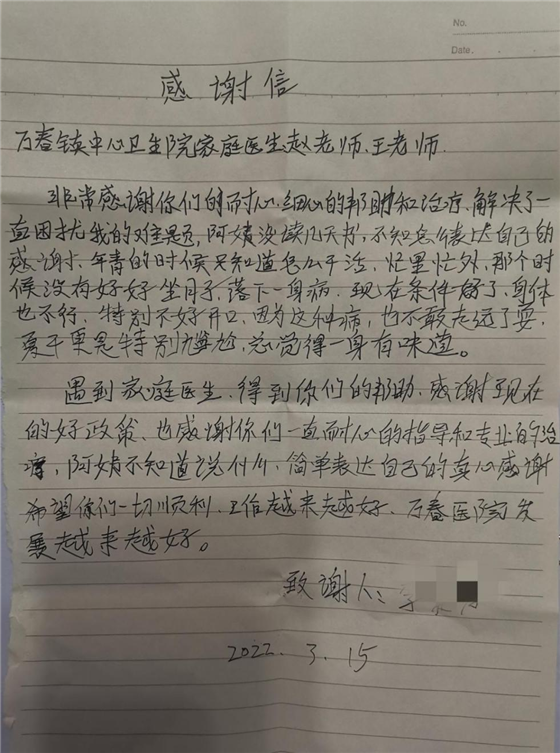 No.
Date.
感谢信
万春镇中心卫生院家庭医生赵老师、王老师
非常感谢你们的耐心、细心的帮助和治疗、解决了一
直困扰我的难题, 阿姨没读几天书, 不知怎么表达自己的
感谢, 年青的时候只知道怎么干活, 忙里忙外, 那个时
候没有好好坐月子, 落下一身病. 现在条件好了, 身体
也不行, 特别不好开口, 因为这种病, 也不敢走远了耍,
夏天更是特别尴尬, 总觉得一身有味道。
遇到家庭医生、得到你们的帮助、感谢现在
的好政策、也感谢你们一直耐心的指导和专业的治
疗, 阿姨不知道说什么, 简单表达自己的真心感谢
希望你们一切顺利. 工作越来越好、万春医院发
展越来越好。
致谢人:
2022. 3. 15